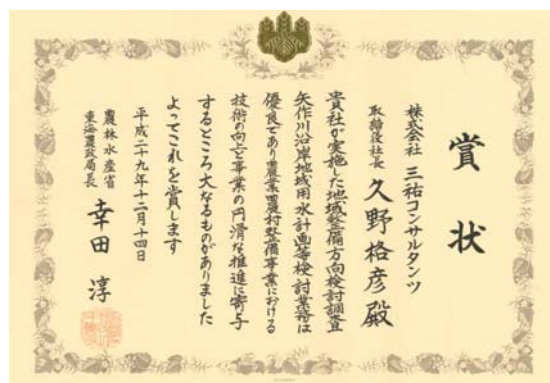 賞状
株式会社 三祐コンサルタンツ
取締役社長 久野格彦殿
貴社が実施した地域整備方向検討調査
矢作川沿岸地域用水計画等検討業務は
優良であり農業農村整備事業における
技術の向上と事業の円滑な推進に寄与
するところ大なるものがありました
よってこれを賞します
平成二十九年十二月十四日
農林水産省
東海農政局長 幸田淳